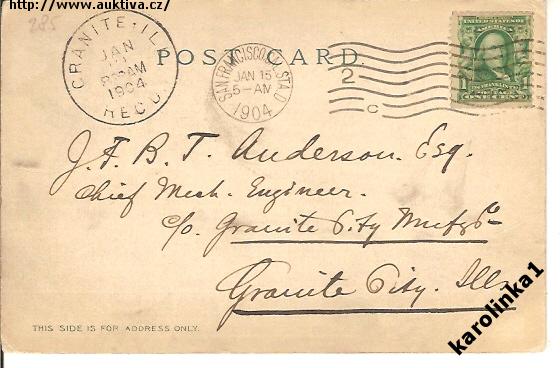 http://www.auktiva.cz/
285
GRANITE ILL
JAN
AM
1904
REC'D.
POST CARD.
SAN FRANCISCO, CAL. STA. D
JAN 15
5-AM
1904
2
C
1
FRANKLIN
ONE CENT
J. F. B. T. Anderson. Esq.
Chief Mech. Engineer.
c/o. Granite City Mnfg Co
Granite City. Ills
THIS SIDE IS FOR ADDRESS ONLY.
karolinka1